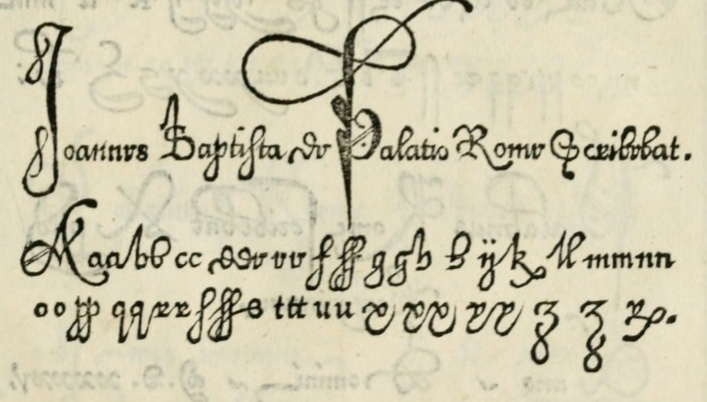 Joannes Baptista de Palatio Rome Scribebat.
A a a b b c c d d e e e f ff g g h h ij k ll m m n n
o o pp q q r r s ss s t tt u u x xx y y z z &.